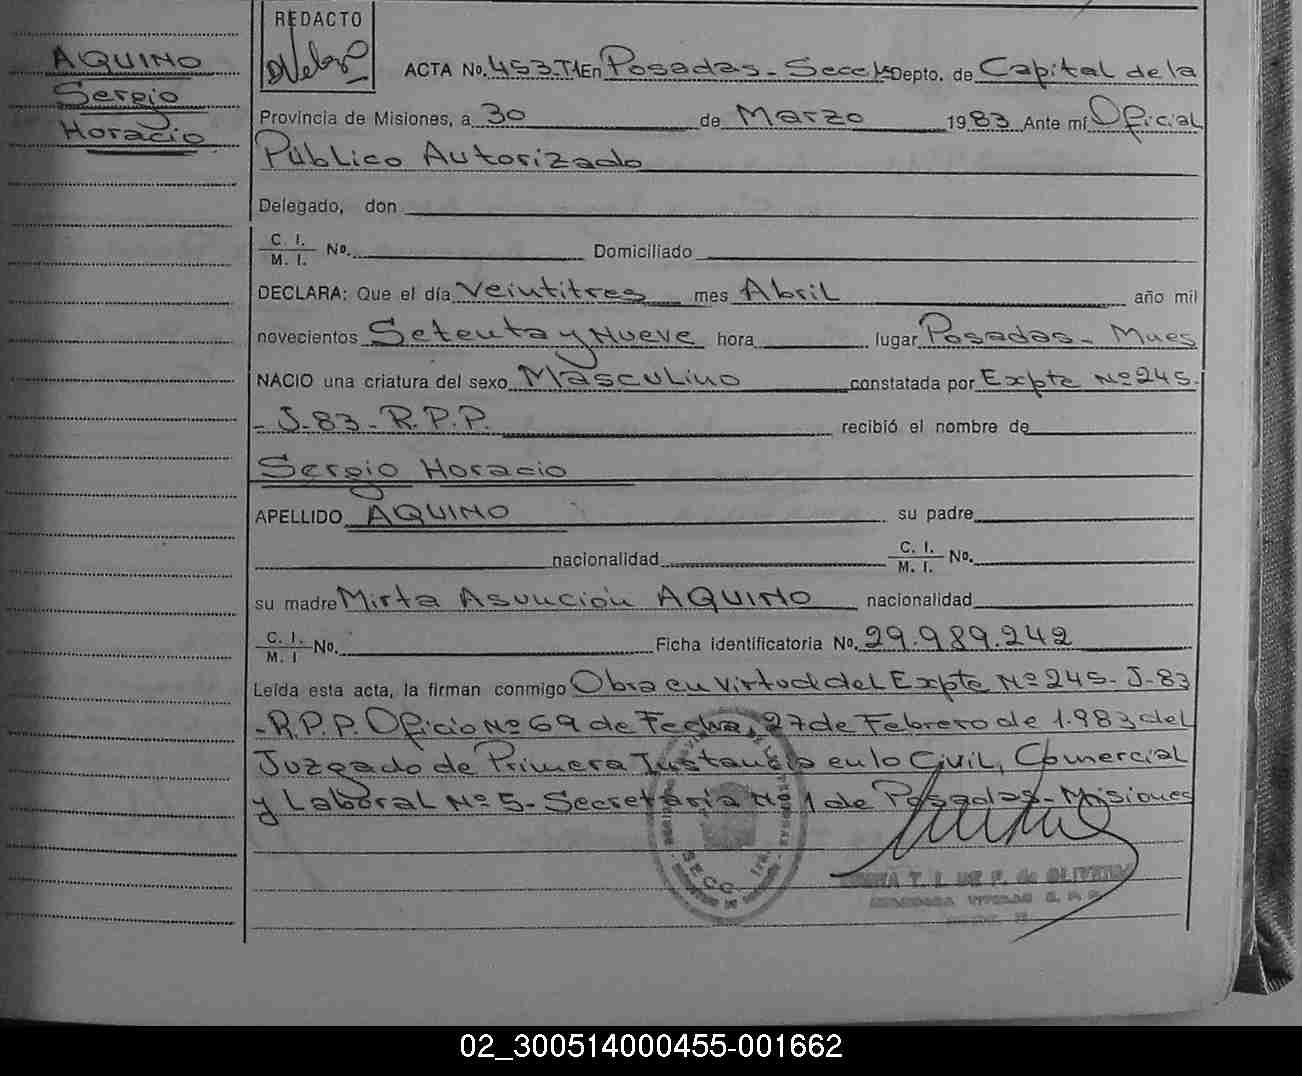 AQUINO
Sergio
Horacio
REDACTO
ACTA No. 453-T1 En Posadas - Secc 1ª Depto. de Capital de la
Provincia de Misiones, a 30 de Marzo 1983 Ante mí Oficial
Público Autorizado
Delegado, don
C. I.
M. I. No. Domiciliado
DECLARA: Que el día Veintitres mes Abril año mil
novecientos Setenta y Nueve hora lugar Posadas - Mnes
NACIO una criatura del sexo Masculino constatada por Expte Nº 245-
- J-83-R.P.P. recibió el nombre de
Sergio Horacio
APELLIDO AQUINO su padre
nacionalidad C. I.
M. I. No.
su madre Mirta Asunción AQUINO nacionalidad
C. I.
M. I No. Ficha identificatoria No. 29.989.242
Leída esta acta, la firman conmigo Obra en virtud del Expte Nº 245-J-83
-R.P.P. Oficio Nº 69 de Fecha 27 de Febrero de 1.983 del
Juzgado de Primera Instancia en lo Civil, Comercial
y Laboral Nº 5- Secretaria Nº 1 de Posadas - Misiones
SECC. 1ra.
T. I. DE F. de OLIVEIRA
02_300514000455-001662